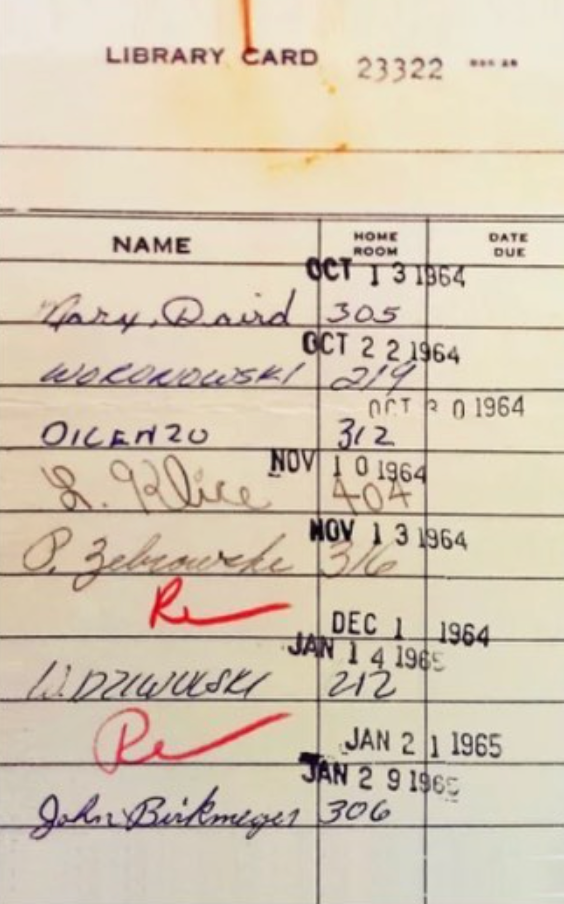 LIBRARY CARD 23322
NAME HOME ROOM DATE DUE
OCT 13 1964
Mary Daird 305
OCT 22 1964
WORONOWSKI 219
OCT 0 1964
DICENZO 312
NOV 10 1964
L. 404
NOV 13 1964
P. Zebrowski 316
Re
DEC 1 1964
JAN 14 1965
W. DZIWULSKI 212
Re
JAN 21 1965
JAN 29 1965
John Birkmeyer 306